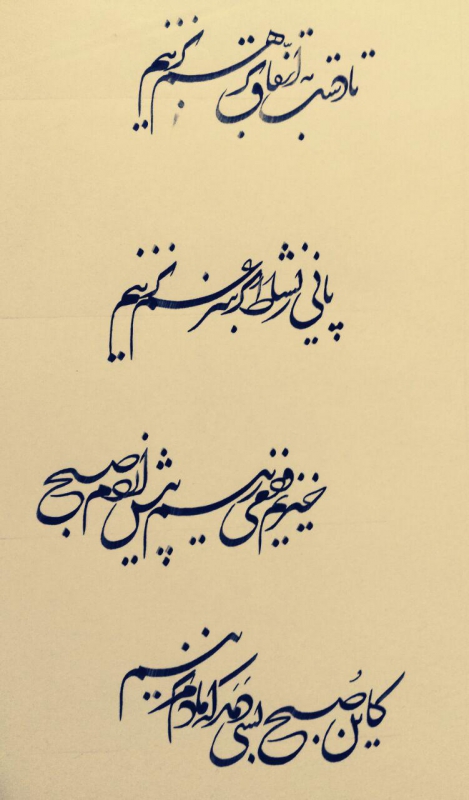 تا دست به اتّفاق بر هم نزنیم
پایی ز نشاط بر سر غم نزنیم
خیزیم و دمی زنیم پیش از دم صبح
کاین صُبح بسی دَمَد که ما دم نزنیم